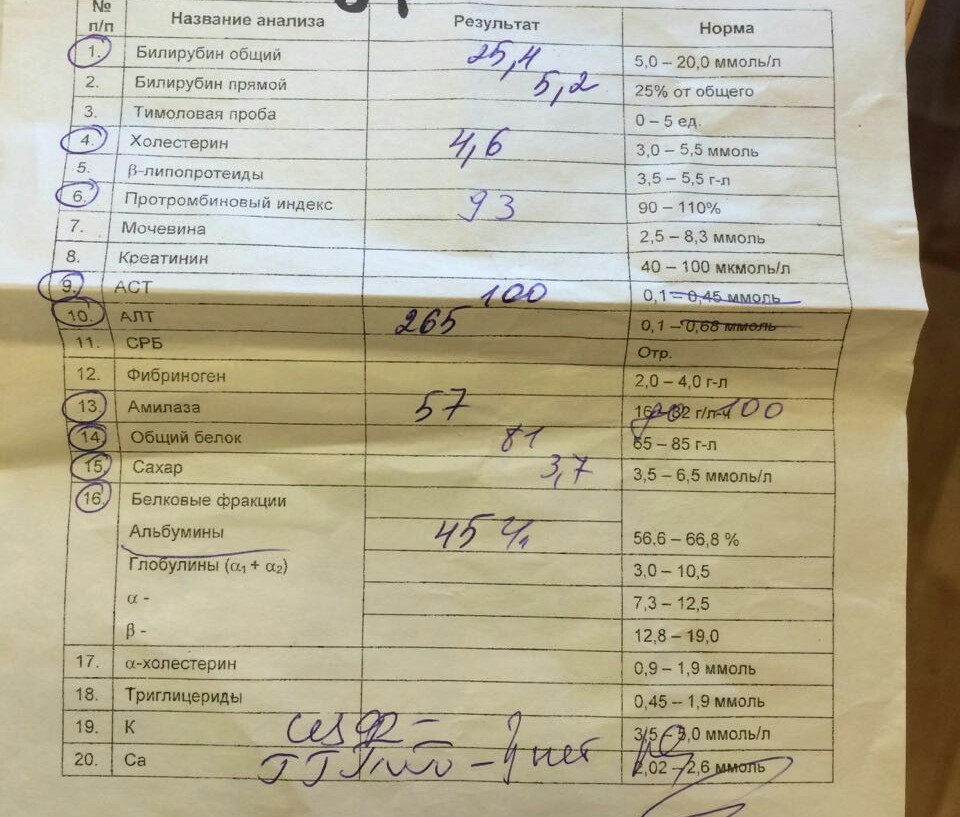 № п/п Название анализа Результат Норма
1. Билирубин общий 25,4 5,0 – 20,0 ммоль/л
2. Билирубин прямой 5,2 25% от общего
3. Тимоловая проба 0 – 5 ед.
4. Холестерин 4,6 3,0 – 5,5 ммоль
5. β-липопротеиды 3,5 – 5,5 г-л
6. Протромбиновый индекс 93 90 – 110%
7. Мочевина 2,5 – 8,3 ммоль
8. Креатинин 40 – 100 мкмоль/л
9. АСТ 100 0,1 – 0,45 ммоль
10. АЛТ 265 0,1 – 0,68 ммоль
11. СРБ Отр.
12. Фибриноген 2,0 – 4,0 г-л
13. Амилаза 57 г/л-ч до 100
14. Общий белок 81 65 – 85 г-л
15. Сахар 3,7 3,5 – 6,5 ммоль/л
16. Белковые фракции
Альбумины 45 56,6 – 66,8 %
Глобулины (α₁ + α₂) 3,0 – 10,5
α - 7,3 – 12,5
β - 12,8 – 19,0
17. α-холестерин 0,9 – 1,9 ммоль
18. Триглицериды 0,45 – 1,9 ммоль
19. К 3,5 – 5,0 ммоль/л
20. Са нет 2,02 – 2,6 ммоль